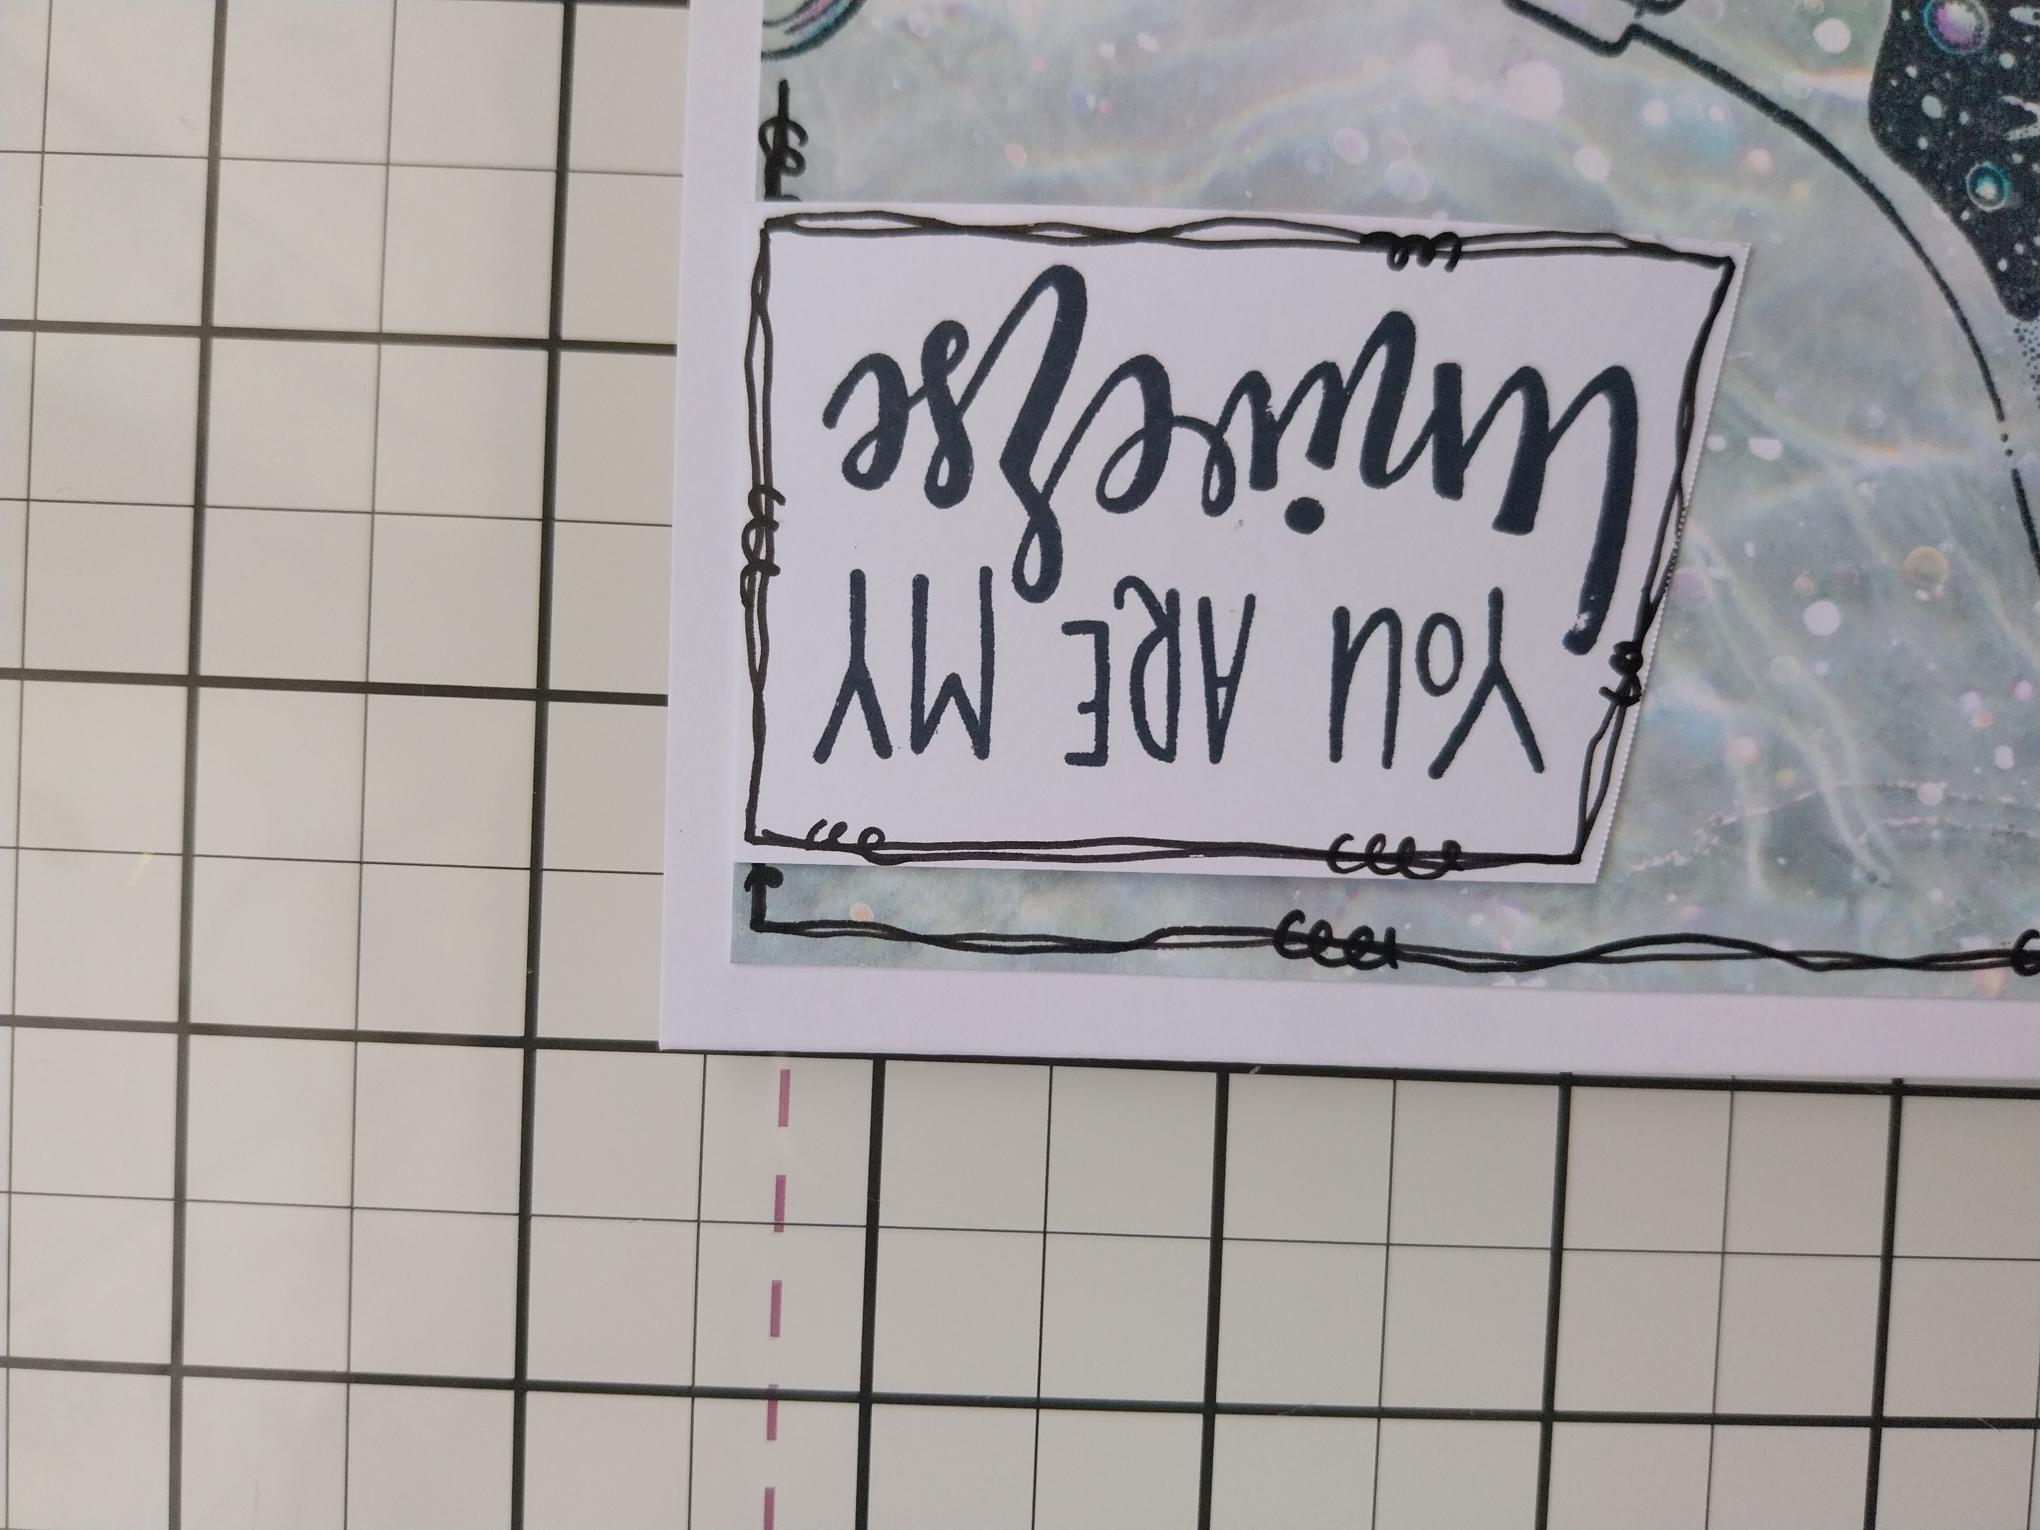 YOU ARE MY
Universe